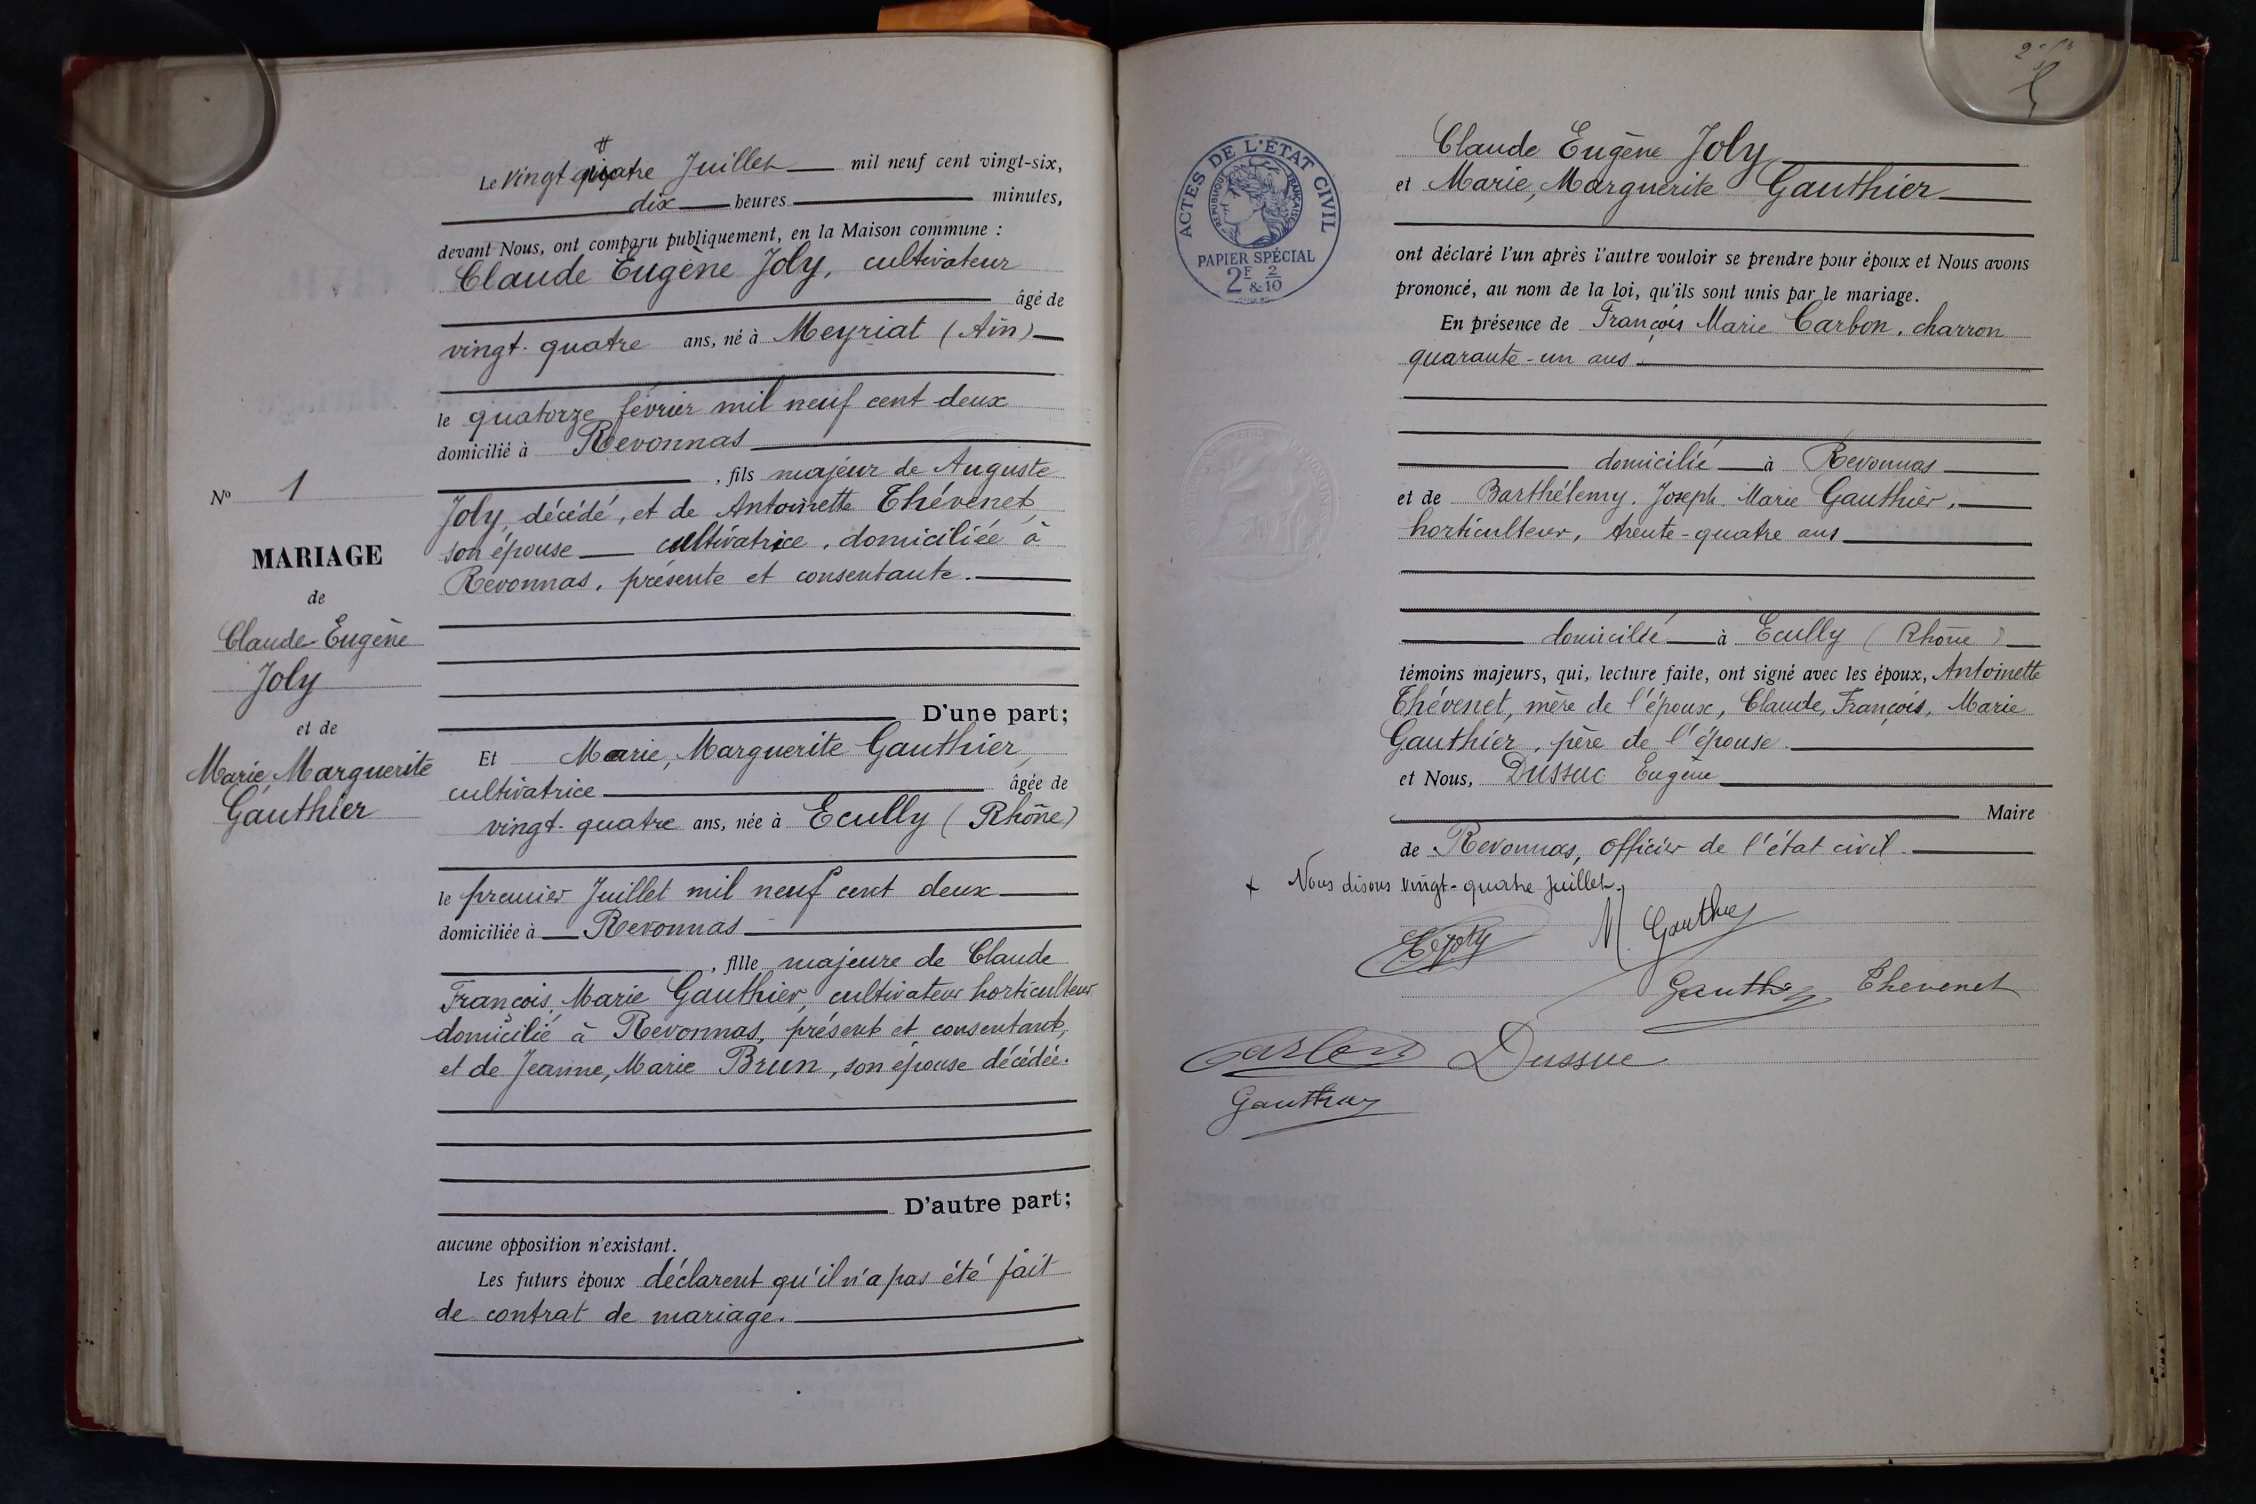 Le vingt quatre Juillet mil neuf cent vingt-six,
dix heures minutes,
devant Nous, ont comparu publiquement, en la Maison commune :
Claude Eugène Joly, cultivateur
âgé de
vingt-quatre ans, né à Meyriat (Ain)
le quatorze février mil neuf cent deux
domicilié à Revonnas
, fils majeur de Auguste
Joly, décédé, et de Antoinette Thévenet,
son épouse cultivatrice, domiciliée à
Revonnas, présente et consentante.
D'une part;
Et Marie, Marguerite Gauthier,
cultivatrice âgée de
vingt-quatre ans, née à Ecully (Rhône)
le premier Juillet mil neuf cent deux
domiciliée à Revonnas
, fille majeure de Claude
François, Marie Gauthier, cultivateur horticulteur
domicilié à Revonnas, présent et consentant,
et de Jeanne, Marie Brun, son épouse décédée.
D'autre part;
aucune opposition n'existant.
Les futurs époux déclarent qu'il n'a pas été fait
de contrat de mariage.
N° 1
MARIAGE
de
Claude Eugène
Joly
et de
Marie, Marguerite
Gauthier
ACTES DE L'ÉTAT CIVIL
RÉPUBLIQUE FRANÇAISE
PAPIER SPÉCIAL
2F & 2/10
Claude Eugène Joly
et Marie, Marguerite Gauthier
ont déclaré l'un après l'autre vouloir se prendre pour époux et Nous avons
prononcé, au nom de la loi, qu'ils sont unis par le mariage.
En présence de François Marie Carbon, charron
quarante-un ans
domicilié à Revonnas
et de Barthélemy, Joseph Marie Gauthier,
horticulteur, trente-quatre ans
domicilié à Ecully (Rhône)
témoins majeurs, qui, lecture faite, ont signé avec les époux, Antoinette
Thévenet, mère de l'époux, Claude, François, Marie
Gauthier, père de l'épouse.
et Nous, Dussuc Eugène
Maire
de Revonnas, officier de l'état civil.
+ Nous disons vingt-quatre Juillet.
E Joly M. Gauthier
Gauthier Thevenet
Carbon Dussuc
Gauthier